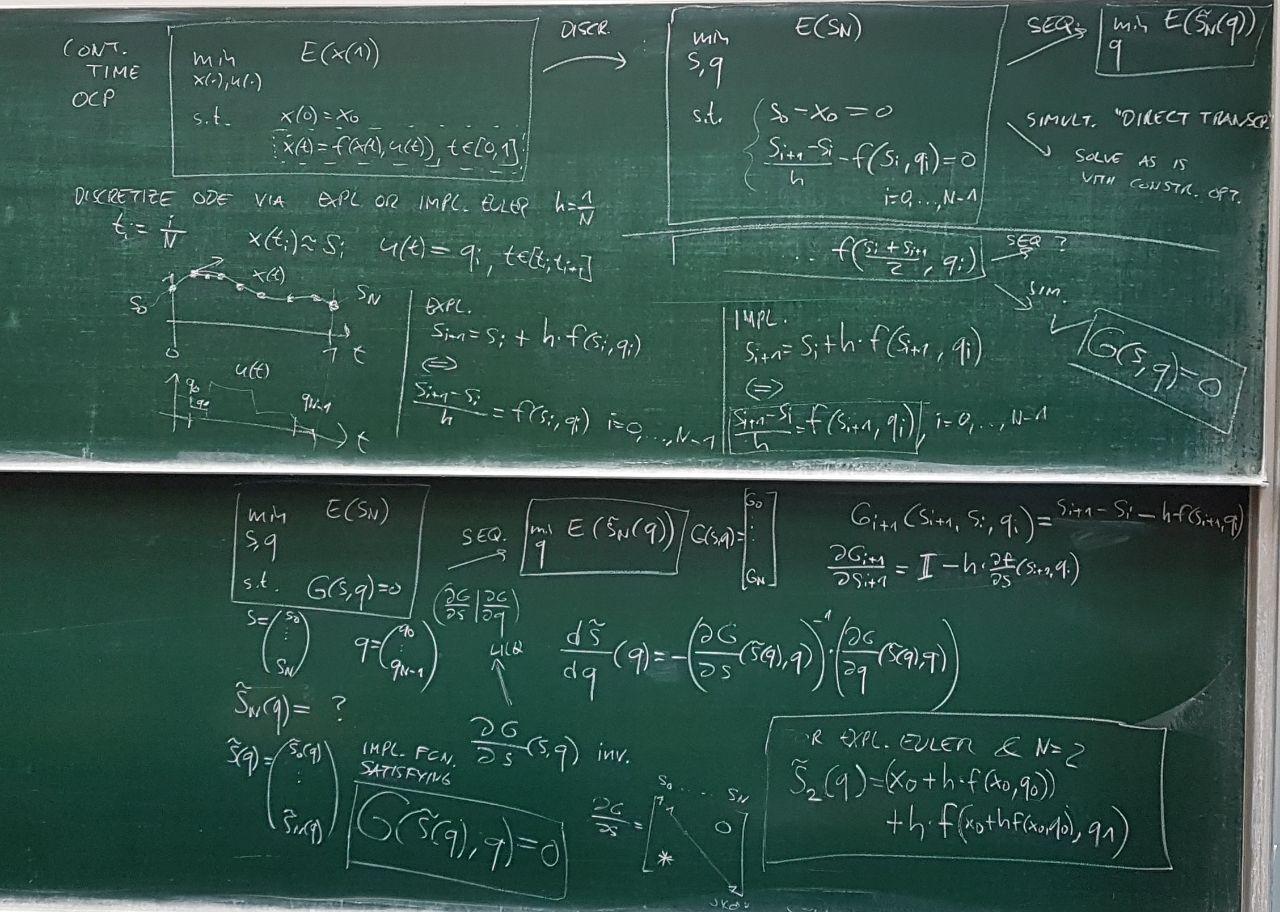 CONT. TIME OCP
min E(x(1))
x(·),u(·)
s.t. x(0) = x0
ẋ(t) = f(x(t), u(t)), t∈[0,1]
DISCR.
min E(SN)
s,q
s.t. s0 - x0 = 0
(si+1 - si)/h - f(si, qi) = 0
i=0,...,N-1
SEQ.
min E(s̃N(q))
q
SIMULT. "DIRECT TRANSCR
SOLVE AS IS
WITH CONSTR. OPT.
DISCRETIZE ODE VIA EXPL OR IMPL. EULER h = 1/N
ti = i/N x(ti) ≈ si u(t) = qi, t∈[ti, ti+1]
f((si + si+1)/2, qi)
SEQ ?
SIM.
G(s,q) = 0
s0 x(t) SN
0 1 t
q0 u(t) qN-1 t
EXPL.
si+1 = si + h·f(si, qi)
⇔
(si+1 - si)/h = f(si, qi) i=0,...,N-1
IMPL.
si+1 = si + h·f(si+1, qi)
⇔
(si+1 - si)/h = f(si+1, qi), i=0,...,N-1
min E(SN)
s,q
s.t. G(s,q)=0
SEQ.
min E(s̃N(q))
q
G(s,q) = [G0 ⋮ GN]
Gi+1(si+1, si, qi) = si+1 - si - hf(si+1, qi)
∂Gi+1/∂si+1 = I - h·∂f/∂s(si+1, qi)
s = (s0 ⋮ SN) q = (q0 ⋮ qN-1)
(∂G/∂s | ∂G/∂q)
LICQ
ds̃/dq (q) = -(∂G/∂s (s̃(q), q))^-1 · (∂G/∂q (s̃(q), q))
s̃N(q) = ?
∂G/∂s (s,q) inv.
s̃(q) = (s̃0(q) ⋮ s̃N(q))
IMPL. FCN.
SATISFYING
G(s̃(q), q) = 0
s0 .... SN
∂G/∂s = [1 0 *]
OR EXPL. EULER & N=2
s̃2(q) = (x0 + h·f(x0, q0))
+ h·f(x0 + hf(x0, q0), q1)